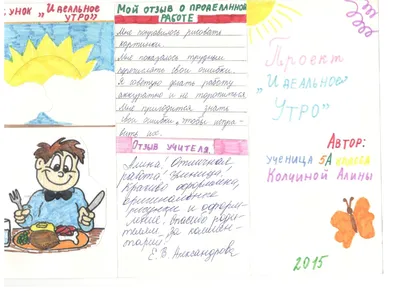 УНОК „ИДЕАЛЬНОЕ
УТРО"
Мой отзыв о проделанной
работе
Мне понравилось рисовать
картинки.
Мне показалось трудным
свои ошибки.
Я советую делать работу
аккуратно и не торопиться
Мне пригодится знать
свои ошибки, чтобы
их.
Отзыв учителя.
Алина! Отличная
работа! Умница!
Красиво оформлена,
оригинальные
рисунки и оформ-
ление. Спасибо роди-
телям за коммен-
тарии!
Е.В. Александрова
Проект
„Идеальное
Утро"
Автор:
ученица 5А класса
Колчиной Алины
2015